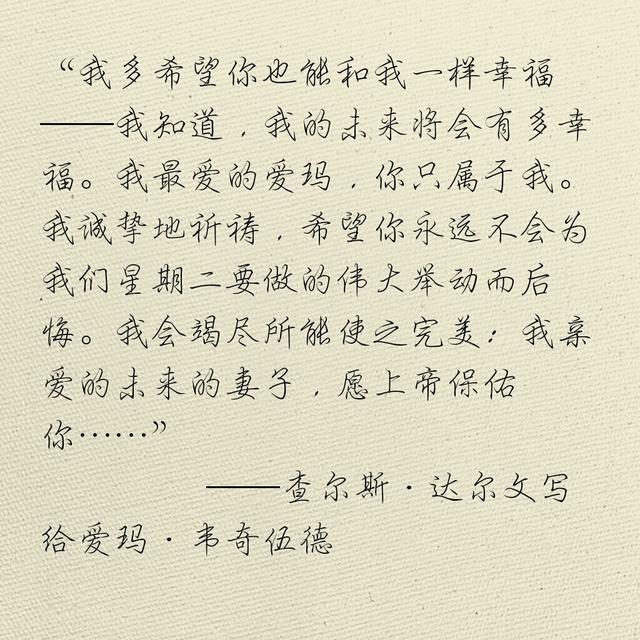 “我多希望你也能和我一样幸福
——我知道，我的未来将会有多幸
福。我最爱的爱玛，你只属于我。
我诚挚地祈祷，希望你永远不会为
我们星期二要做的伟大举动而后
悔。我会竭尽所能使之完美：我亲
爱的未来的妻子，愿上帝保佑
你……”
——查尔斯·达尔文写
给爱玛·韦奇伍德